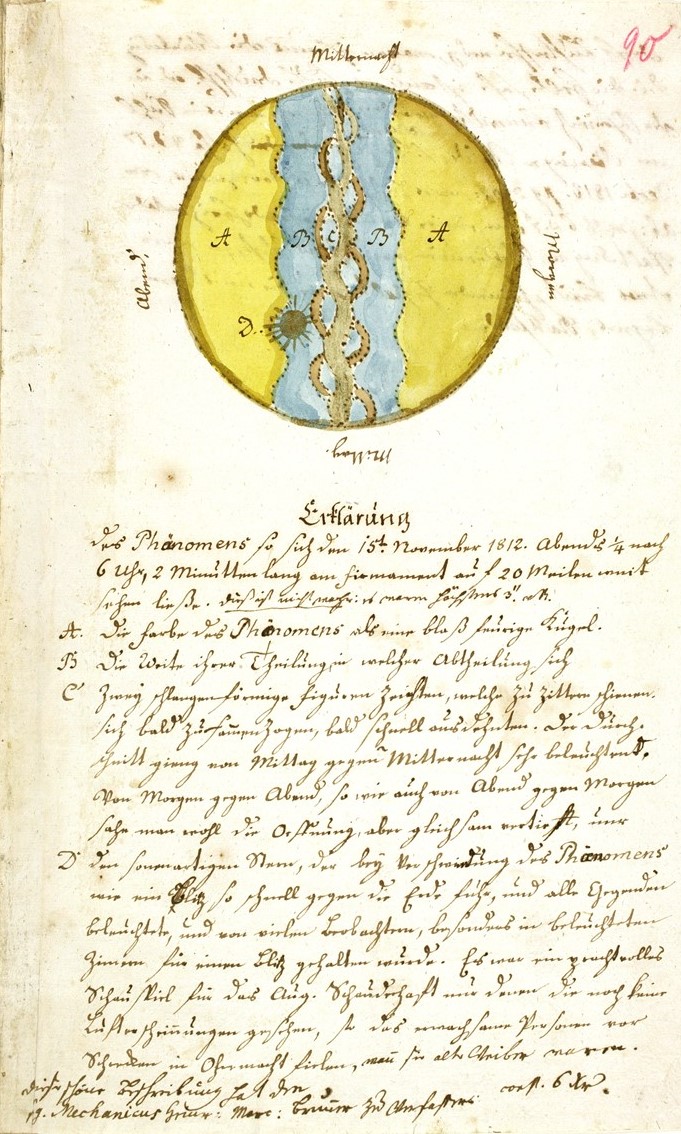 90
Mitternacht
A B C B A
Abend.
Morgen
D.
Mittag
Erklärung
des Phänomens so sich den 15t. November 1812. Abends ¼ nach
6 Uhr, 2 Minutten lang am firmament auf 20 Meilen weit
sehen ließe. dieß ist nicht wahr: es waren höchstens 3.
A. Die farbe des Phänomens als eine blaß feurige Kugel.
B Die Weite ihrer Theilung, in welcher Abtheilung sich
C Zwey schlangenförmige figuren zeigten, welche zu zittern schienen.
sich bald zusamenzogen, bald schnell ausdehnten. Der Durch-
schnitt gieng von Mittag gegen Mitternacht sehr beleuchtend.
Von Morgen gegen Abend, so wie auch von Abend gegen Morgen
sahe man wohl die Oeffnung, aber gleichsam vertieft, nur
D den sonenartigen Stern, der bey Verschwindung des Phänomens
wie ein Blitz so schnell gegen die Erde fuhr, und alle Gegenden
beleuchtete, und von vielen Beobachtern, besonders in beleuchteten
Zimern für einen Blitz gehalten wurde. Es war ein prachtvolles
Schauspiel für das Aug. Schaudehaft nur denen die noch keine
Lufterscheinungen gesehen, so das erwachsene Personen vor
Schrecken in Ohnmacht fielen, wann sie alte Weiber waren.
diese schöne Beschreibung hat den
Mechanicus Heinr: Marc: Bruner zu Verfasser: cost. 6 Xr.